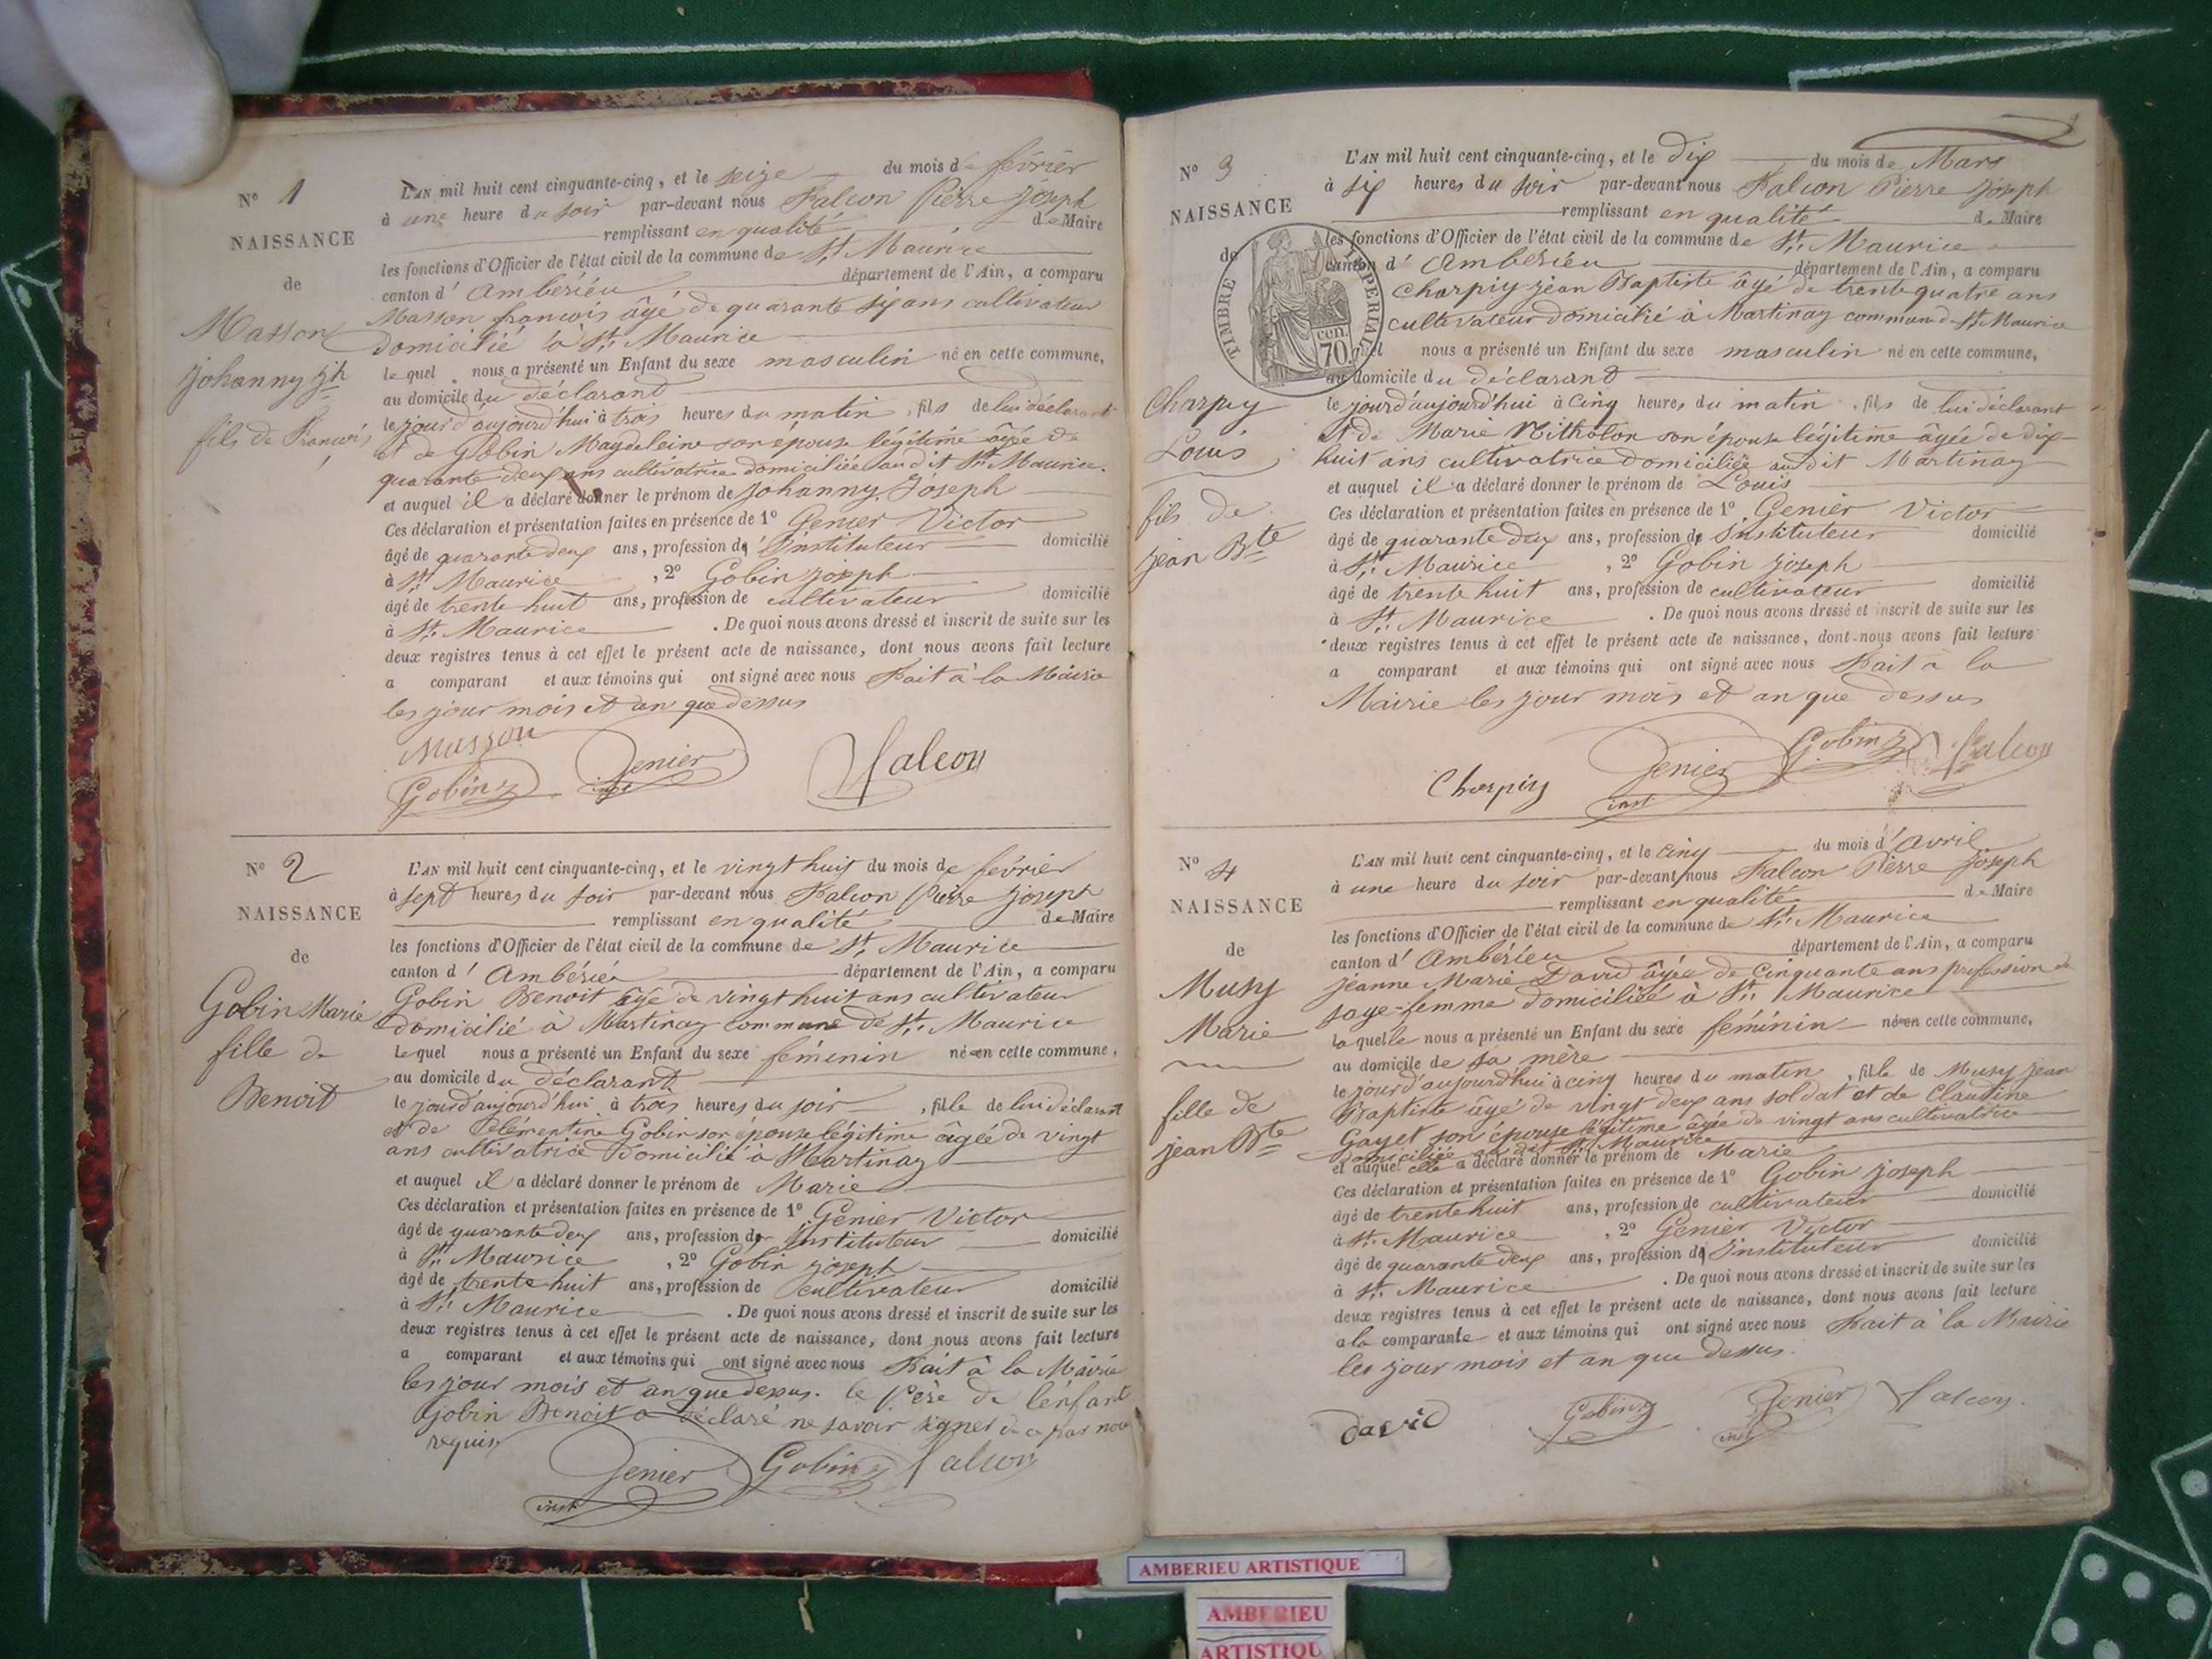 N° 1
NAISSANCE
de
Masson
Johanny Jh
fils de François
L'AN mil huit cent cinquante-cinq, et le seize du mois de février
à une heure du soir par-devant nous Falcon Pierre Joseph
remplissant en qualité de Maire
les fonctions d'Officier de l'état civil de la commune de St. Maurice
canton d' Ambérieu département de l'Ain, a comparu
Masson francois âgé de quarante six ans cultivateur
domicilié à St. Maurice
lequel nous a présenté un Enfant du sexe masculin né en cette commune,
au domicile du déclarant
le jour d'aujourd'hui à trois heures du matin, fils de lui déclarant
et de Gobin Magdeleine son épouse légitime âgée de
quarante deux ans cultivatrice domiciliée audit St. Maurice.
et auquel il a déclaré donner le prénom de Johanny Joseph
Ces déclaration et présentation faites en présence de 1° Genier Victor
âgé de quarante deux ans, profession d' Instituteur domicilié
à St. Maurice, 2° Gobin Joseph
âgé de trente huit ans, profession de cultivateur domicilié
à St. Maurice. De quoi nous avons dressé et inscrit de suite sur les
deux registres tenus à cet effet le présent acte de naissance, dont nous avons fait lecture
a comparant et aux témoins qui ont signé avec nous Fait à la Mairie
les jour mois et an que dessus
Masson
Gobin J Genier inst Falcon
N° 2
NAISSANCE
de
Gobin Marie
fille de
Benoit
L'AN mil huit cent cinquante-cinq, et le vingt huit du mois de février
à sept heures du soir par-devant nous Falcon Pierre Joseph
remplissant en qualité de Maire
les fonctions d'Officier de l'état civil de la commune de St. Maurice
canton d' Ambérieu département de l'Ain, a comparu
Gobin Benoit âgé de vingt huit ans cultivateur
domicilié à Martinaz commune de St. Maurice
lequel nous a présenté un Enfant du sexe féminin né en cette commune,
au domicile du déclarant
le jour d'aujourd'hui à trois heures du soir, fille de lui déclarant
et de Clémentine Gobin son épouse légitime âgée de vingt
ans cultivatrice domicilié à Martinaz
et auquel il a déclaré donner le prénom de Marie
Ces déclaration et présentation faites en présence de 1° Genier Victor
âgé de quarante deux ans, profession d' Instituteur domicilié
à St. Maurice, 2° Gobin Joseph
âgé de trente huit ans, profession de cultivateur domicilié
à St. Maurice. De quoi nous avons dressé et inscrit de suite sur les
deux registres tenus à cet effet le présent acte de naissance, dont nous avons fait lecture
a comparant et aux témoins qui ont signé avec nous Fait à la Mairie
les jour mois et an que dessus. le Père de l'enfant
Gobin Benoit a déclaré ne savoir signer de ce par nous
requis
Genier inst Gobin J Falcon
N° 3
NAISSANCE
de
TIMBRE IMPERIAL
70 cen.
Charpiy
Louis
fils de
jean Bte
L'AN mil huit cent cinquante-cinq, et le dix du mois de Mars
à six heures du soir par-devant nous Falcon Pierre Joseph
remplissant en qualité de Maire
les fonctions d'Officier de l'état civil de la commune de St. Maurice
canton d' Ambérieu département de l'Ain, a comparu
Charpiy jean Baptiste âgé de trente quatre ans
cultivateur domicilié à Martinaz commune de St. Maurice
quel nous a présenté un Enfant du sexe masculin né en cette commune,
au domicile du déclarant
le jour d'aujourd'hui à cinq heures du matin, fils de lui déclarant
et de Marie son épouse légitime âgée de dix-
huit ans cultivatrice domiciliée audit Martinaz
et auquel il a déclaré donner le prénom de Louis
Ces déclaration et présentation faites en présence de 1° Genier Victor
âgé de quarante deux ans, profession d' Instituteur domicilié
à St. Maurice, 2° Gobin Joseph
âgé de trente huit ans, profession de cultivateur domicilié
à St. Maurice. De quoi nous avons dressé et inscrit de suite sur les
deux registres tenus à cet effet le présent acte de naissance, dont nous avons fait lecture
a comparant et aux témoins qui ont signé avec nous Fait à la
Mairie les jour mois et an que dessus
Charpiy Genier inst Gobin J Falcon
N° 4
NAISSANCE
de
Musy
Marie
fille de
jean Bte
L'AN mil huit cent cinquante-cinq, et le cinq du mois d'avril
à une heure du soir par-devant nous Falcon Pierre Joseph
remplissant en qualité de Maire
les fonctions d'Officier de l'état civil de la commune de St. Maurice
canton d' Ambérieu département de l'Ain, a comparu
jeanne Marie David âgée de cinquante ans profession de
sage-femme domiciliée à St. Maurice
laquelle nous a présenté un Enfant du sexe féminin né en cette commune,
au domicile de sa mère
le jour d'aujourd'hui à cinq heures du matin, fille de Musy jean
Baptiste âgé de vingt deux ans soldat et de Claudine
Gayet son épouse légitime âgée de vingt ans cultivatrice
domiciliée au dit St. Maurice
et auquel elle a déclaré donner le prénom de Marie
Ces déclaration et présentation faites en présence de 1° Gobin Joseph
âgé de trente huit ans, profession de cultivateur domicilié
à St. Maurice, 2° Genier Victor
âgé de quarante deux ans, profession d' Instituteur domicilié
à St. Maurice. De quoi nous avons dressé et inscrit de suite sur les
deux registres tenus à cet effet le présent acte de naissance, dont nous avons fait lecture
a la comparante et aux témoins qui ont signé avec nous Fait à la Mairie
les jour mois et an que dessus.
David Gobin J Genier inst Falcon
AMBERIEU ARTISTIQUE
AMBERIEU
ARTISTIQU